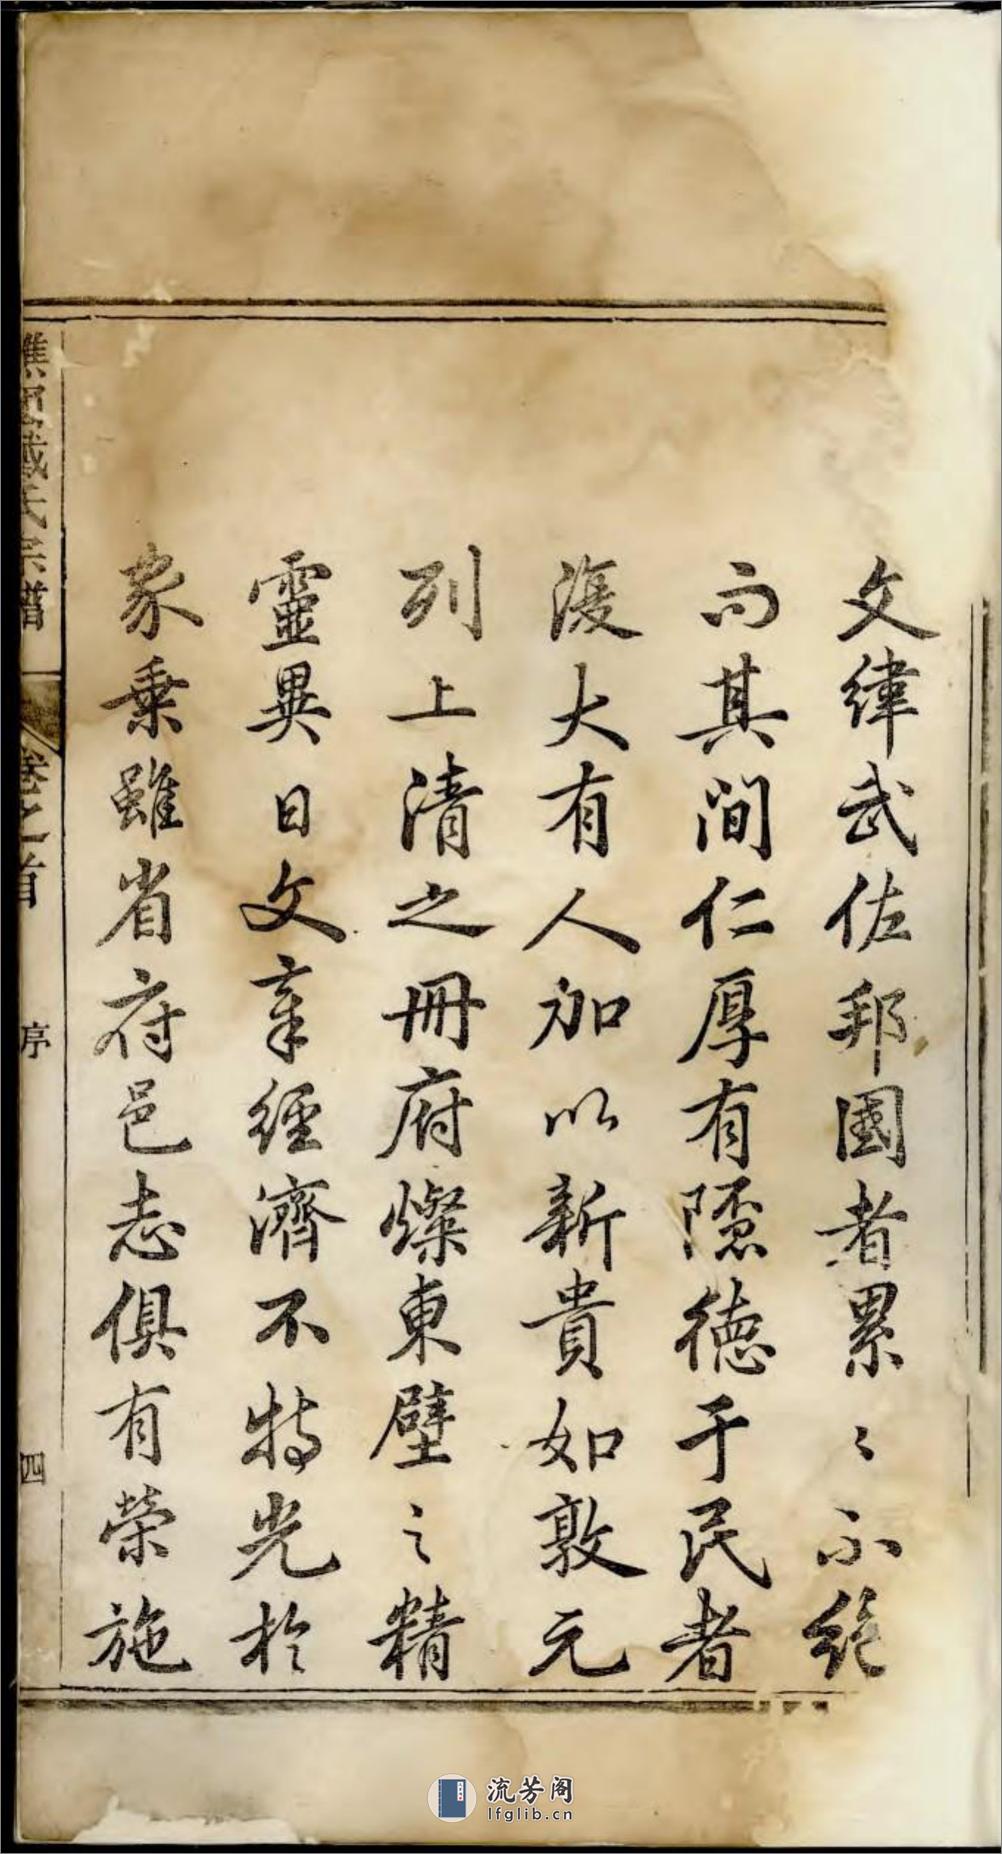 文緯武佐邦國者累〻不絕
而其間仁厚有隱德于民者
復大有人加以新貴如敦元
列上清之冊府燦東壁之精
靈異日文章經濟不特光於
家乘雖省府邑志俱有榮施
氏宗譜
卷之首
序
四
流芳阁
lfglib.cn